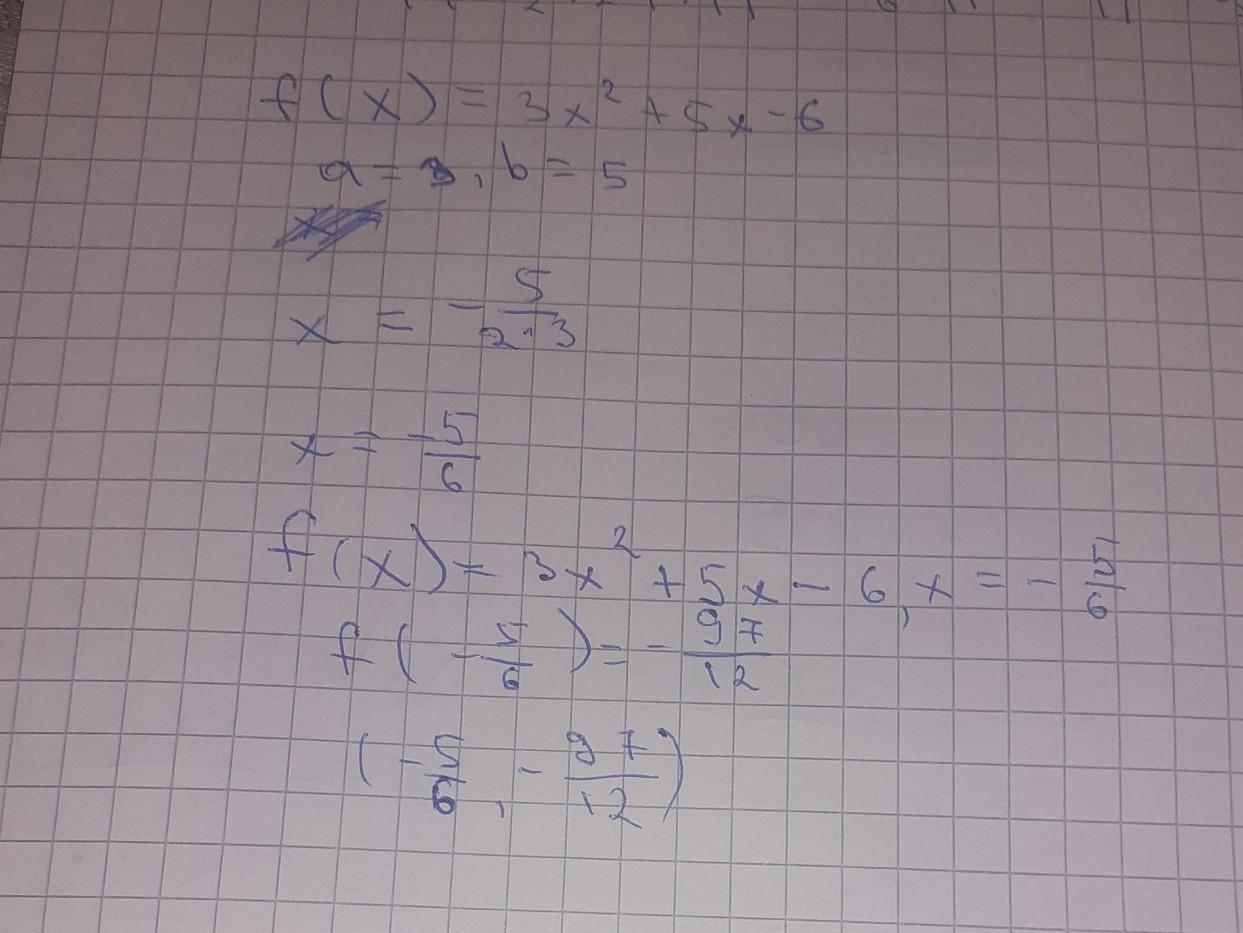 f(x) = 3x² + 5x - 6
a = 3, b = 5
x = - 5/(2·3)
x = - 5/6
f(x) = 3x² + 5x - 6, x = - 5/6
f(- 5/6) = - 97/12
(- 5/6, - 97/12)